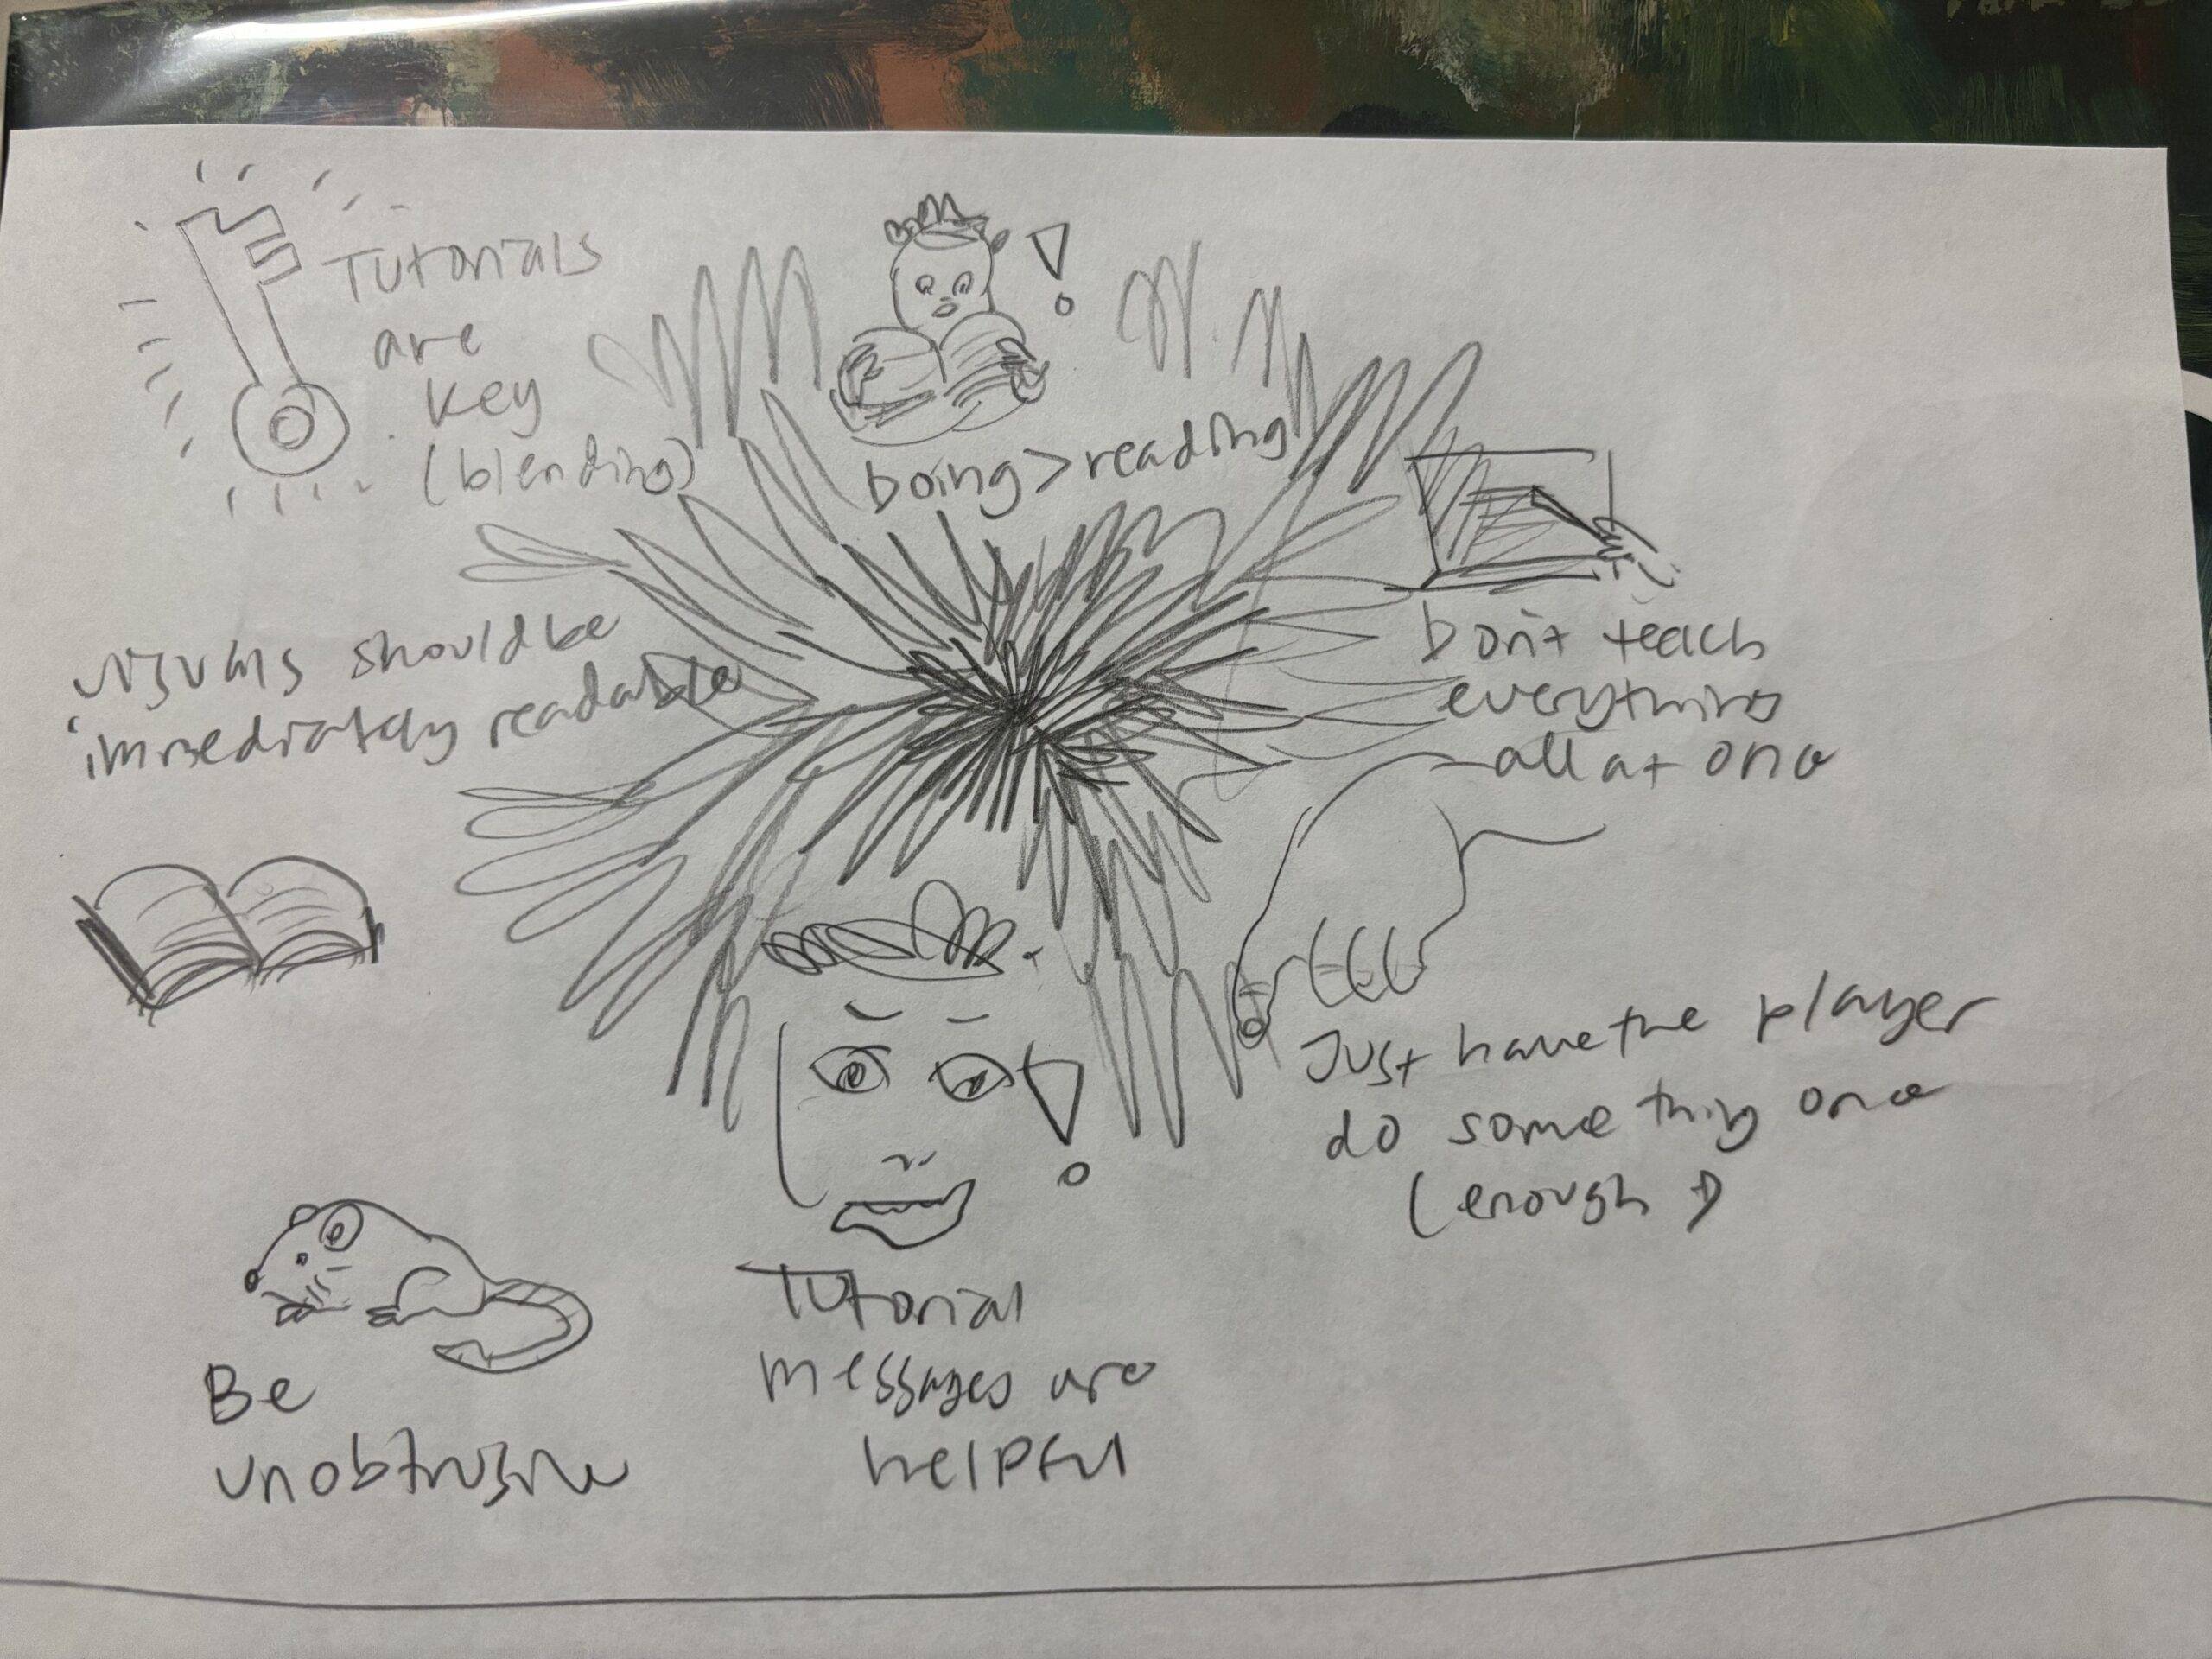 Tutorials
are
key
(blending)
Doing > reading
Don't teach
everything
all at once
Visuals should be
immediately readable
Just have the player
do something once
(enough)
Be
unobtrusive
Tutorial
messages are
helpful